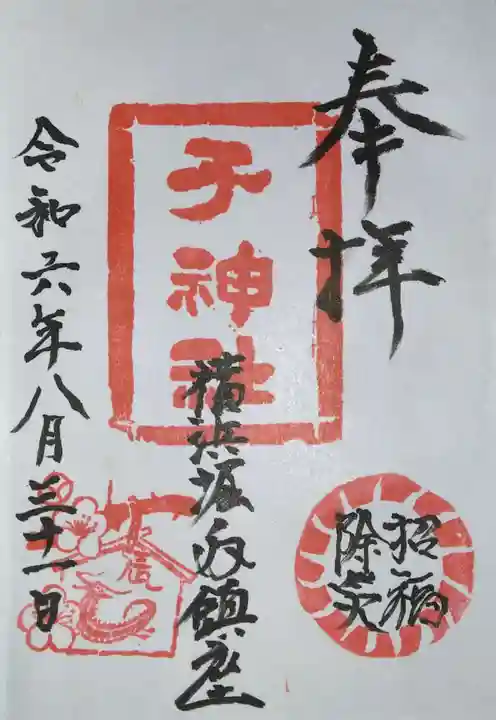 奉拝
招福
除災
子神社
横浜堀内鎮座
辰
令和六年八月三十一日